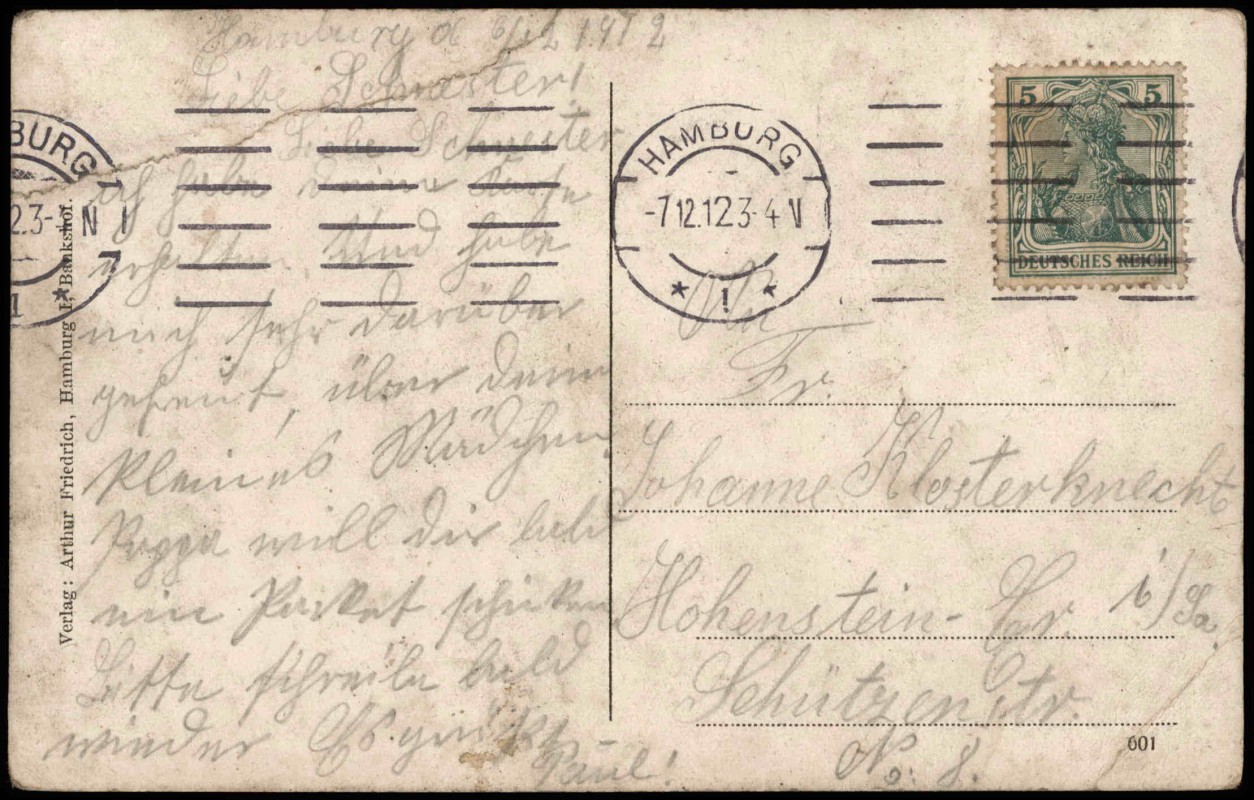 Hamburg d 6/12 1912
Liebe Schwester!
Liebe Schwester
ich habe deine Karte
erhalten. Und habe
mich sehr darüber
gefreut, über dein
kleines Mädchen.
Pappa will dir bald
ein Packet schiken
Bitte schreibe bald
wieder Es grüßt
Paul!
Verlag: Arthur Friedrich, Hamburg 1, Bankshof.
BURG 1
12.3-4 N 1
* 7
1
HAMBURG
-7.12.12 3-4 V
* 1 *
5 5
DEUTSCHES REICH
An
Fr.
Johanne Klosterknecht
Hohenstein-Er. i/Sa.
Schützenstr.
No. 8.
601